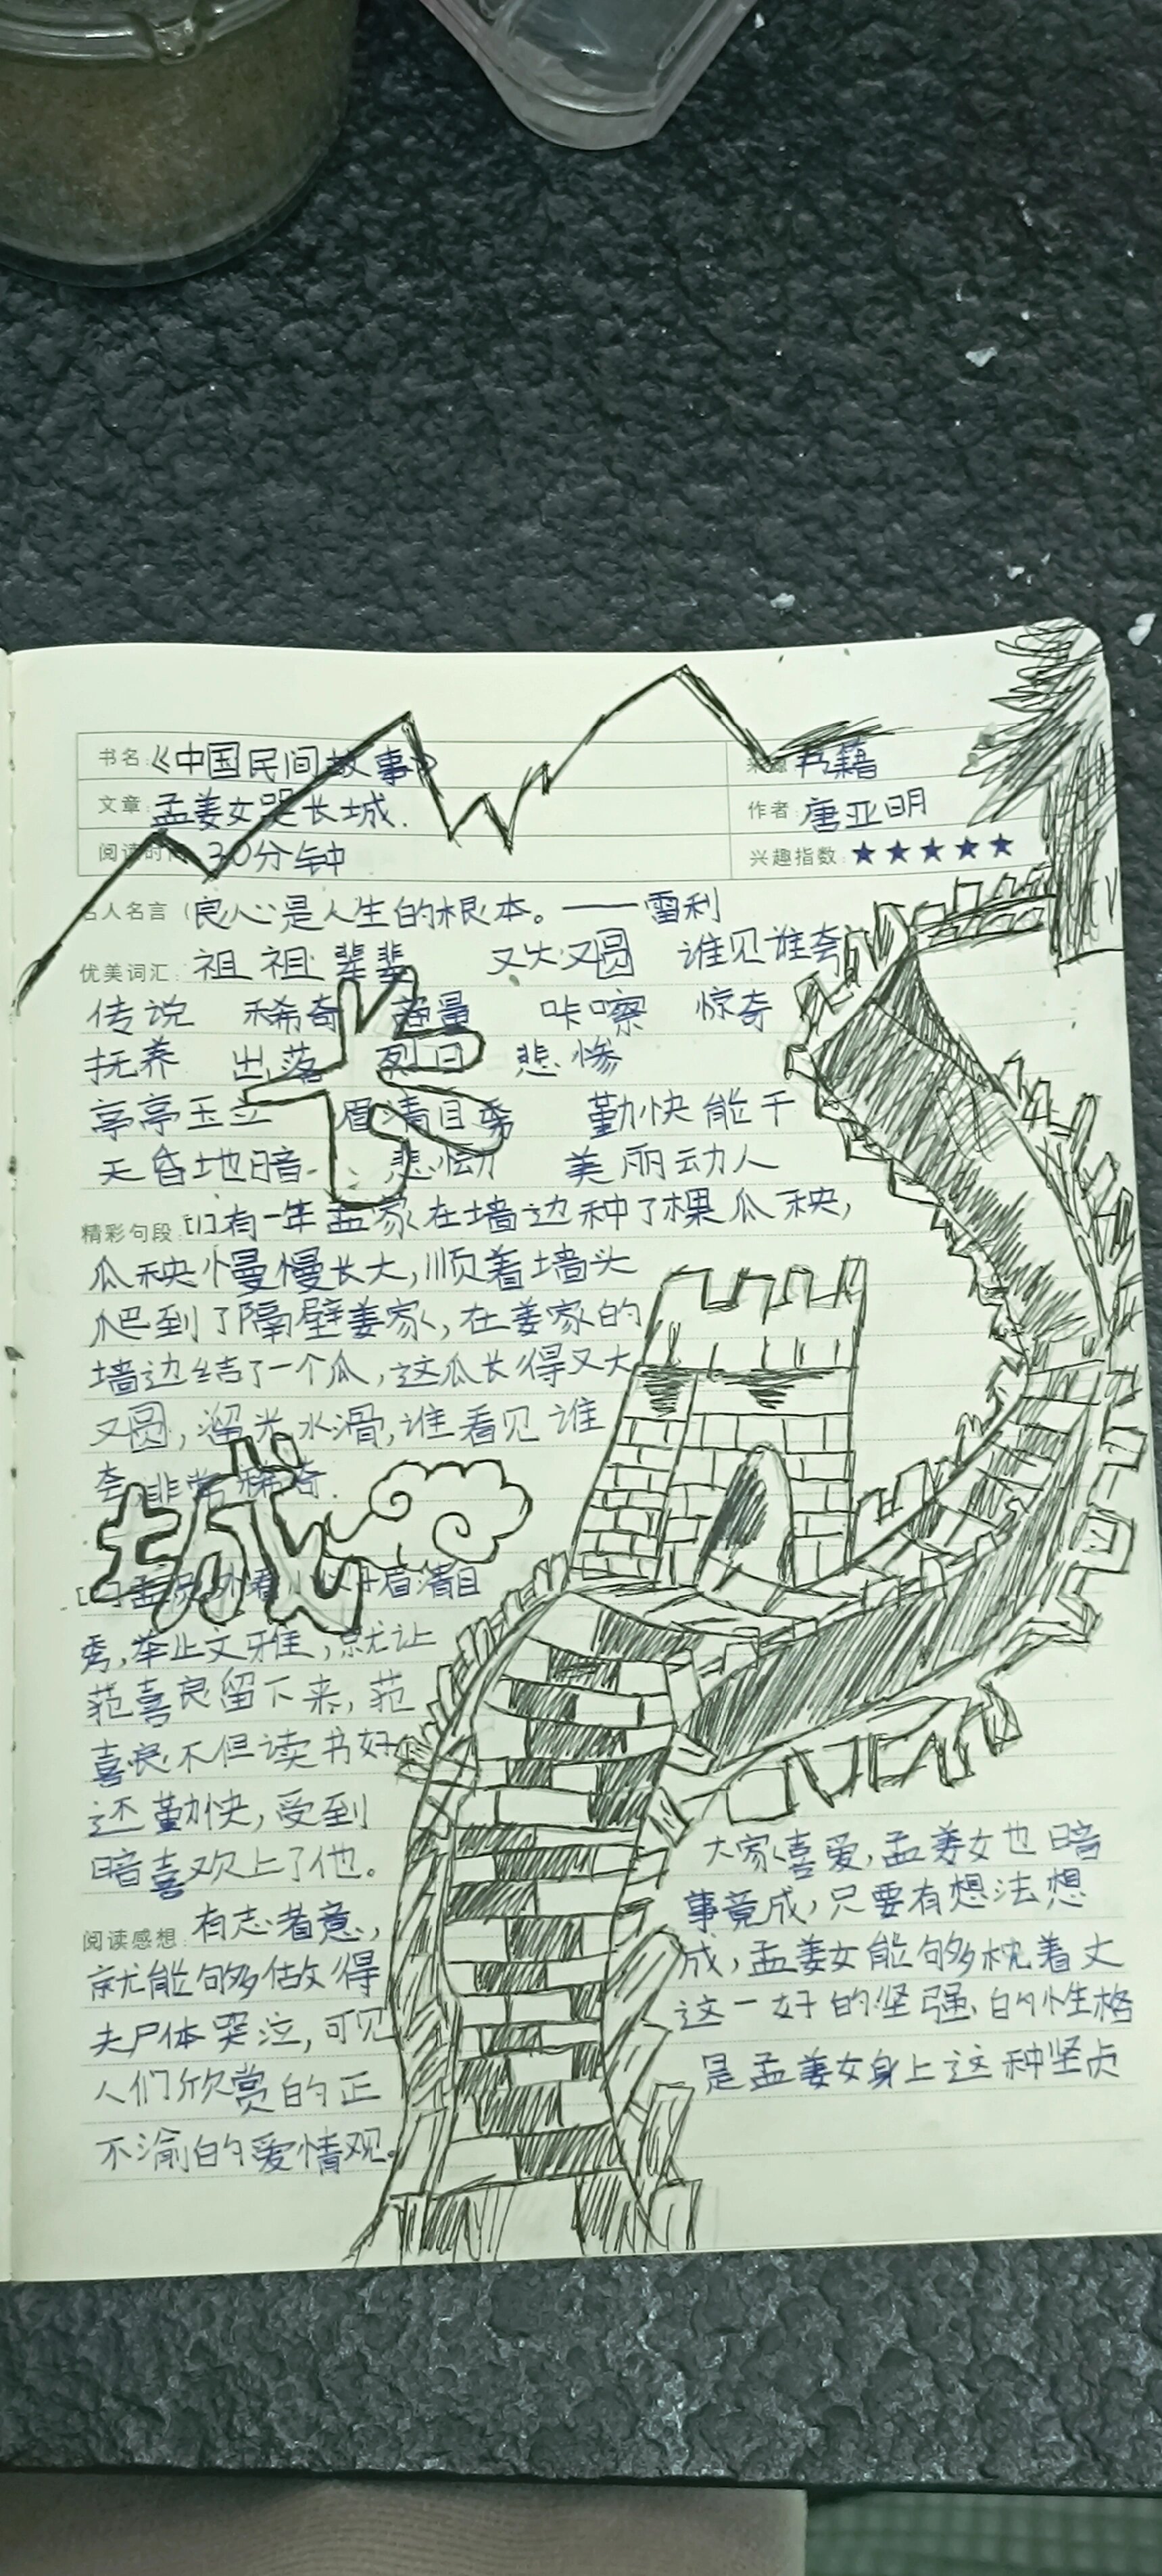 书名:《中国民间故事》 来源:书籍
文章:孟姜女哭长城. 作者:唐亚明
阅读时间:30分钟 兴趣指数:★★★★★
名人名言:良心是人生的根本。——雷利
优美词汇:祖祖辈辈 又大又圆 谁见谁夸
传说 稀奇 商量 咔嚓 惊奇
抚养 出落 烈日 悲惨
长
亭亭玉立 眉清目秀 勤快能干
天昏地暗 悲恸 美丽动人
精彩句段:[1]有一年孟家在墙边种了棵瓜秧,
瓜秧慢慢长大,顺着墙头
爬到了隔壁姜家,在姜家的
墙边结了一个瓜,这瓜长得又大
又圆,溜光水滑,谁看见谁
夸,非常稀奇.
城
眉清目
秀,举止文雅,就让
范喜良留下来,范
喜良不但读书好
还勤快,受到 大家喜爱,孟姜女也暗
暗喜欢上了他。
阅读感想:有志者意, 事竟成,只要有想法想
就能够做得 成,孟姜女能够枕着丈
夫尸体哭泣,可见 这一好的坚强的性格
人们欣赏的正 是孟姜女身上这种坚贞
不渝的爱情观。